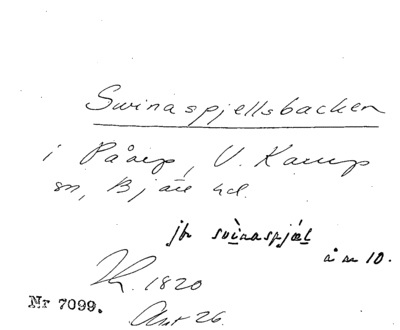 Svinaspjellsbacken
i Påarp, V. Karup
sn, Bjäre hd.
jfr svinaspjæl
å m 10.
1820
Nr 7099.
26.